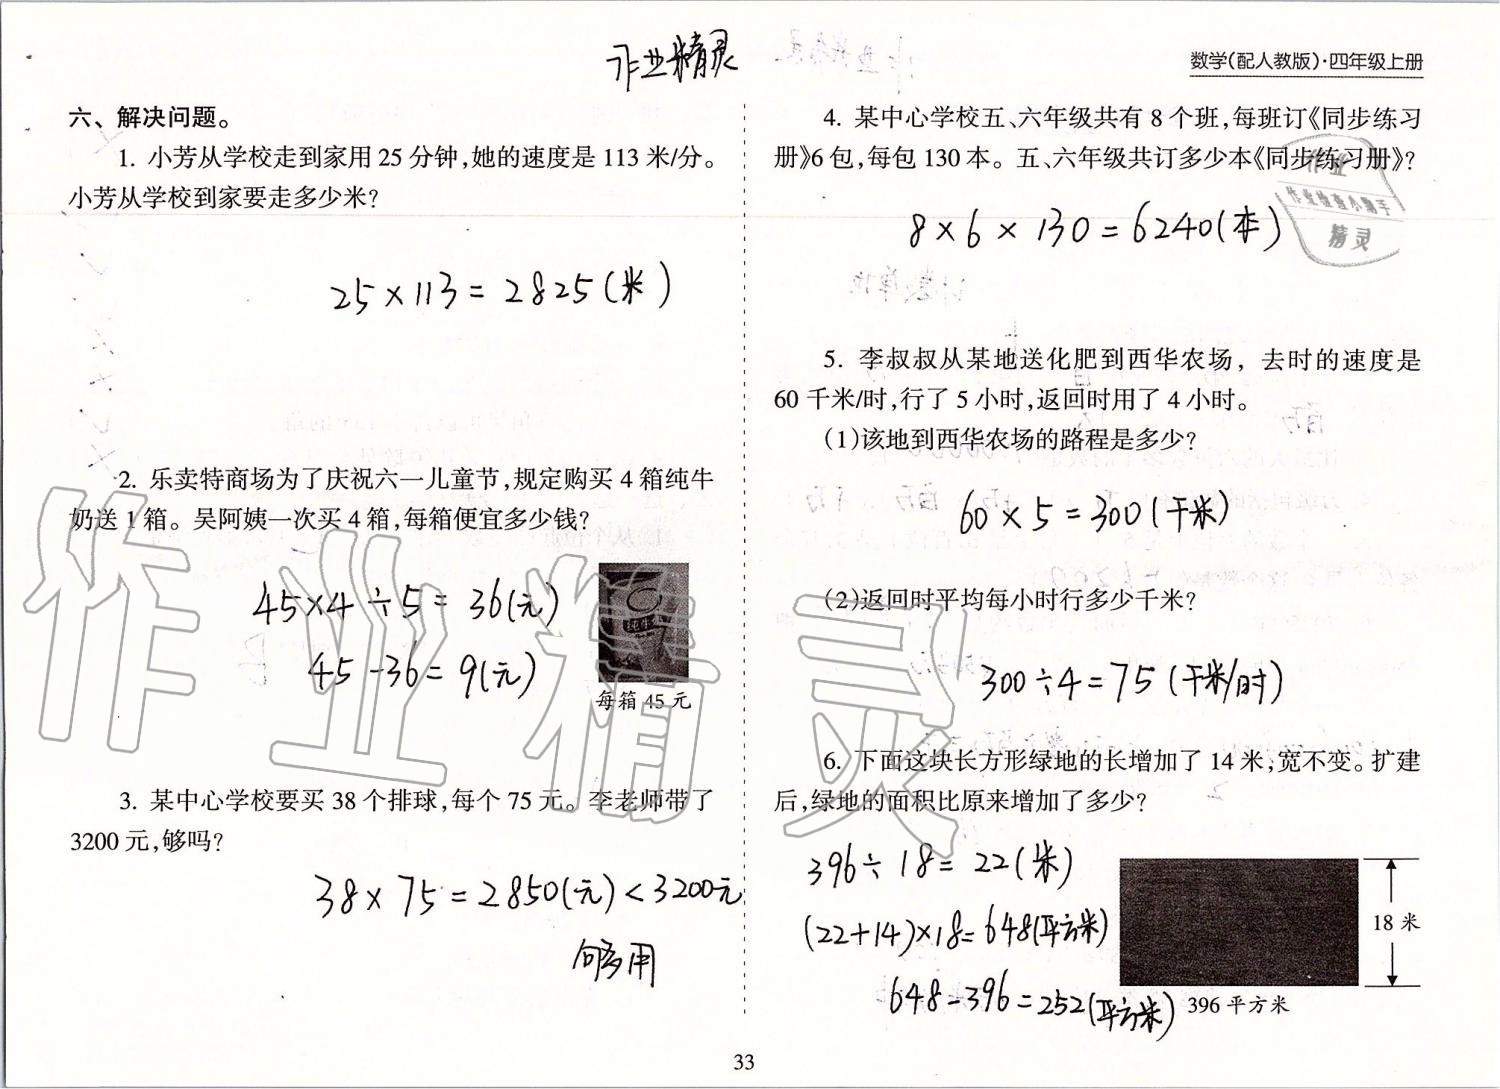 作业精灵
数学(配人教版)·四年级上册
六、解决问题。
1. 小芳从学校走到家用25分钟,她的速度是113米/分。
小芳从学校到家要走多少米?
25×113=2825(米)
2. 乐卖特商场为了庆祝六一儿童节,规定购买4箱纯牛
奶送1箱。吴阿姨一次买4箱,每箱便宜多少钱?
45×4÷5=36(元)
45-36=9(元)
纯牛
每箱45元
3. 某中心学校要买38个排球,每个75元。李老师带了
3200元,够吗?
38×75=2850(元)<3200元
够用
4. 某中心学校五、六年级共有8个班,每班订《同步练习
册》6包,每包130本。五、六年级共订多少本《同步练习册》?
8×6×130=6240(本)
作业
作业检查小助手
精灵
5. 李叔叔从某地送化肥到西华农场，去时的速度是
60千米/时,行了5小时,返回时用了4小时。
(1)该地到西华农场的路程是多少?
60×5=300(千米)
(2)返回时平均每小时行多少千米?
300÷4=75(千米/时)
6. 下面这块长方形绿地的长增加了14米,宽不变。扩建
后,绿地的面积比原来增加了多少?
396÷18=22(米)
(22+14)×18=648(平方米)
648-396=252(平方米)
18米
396平方米
作业精灵
33